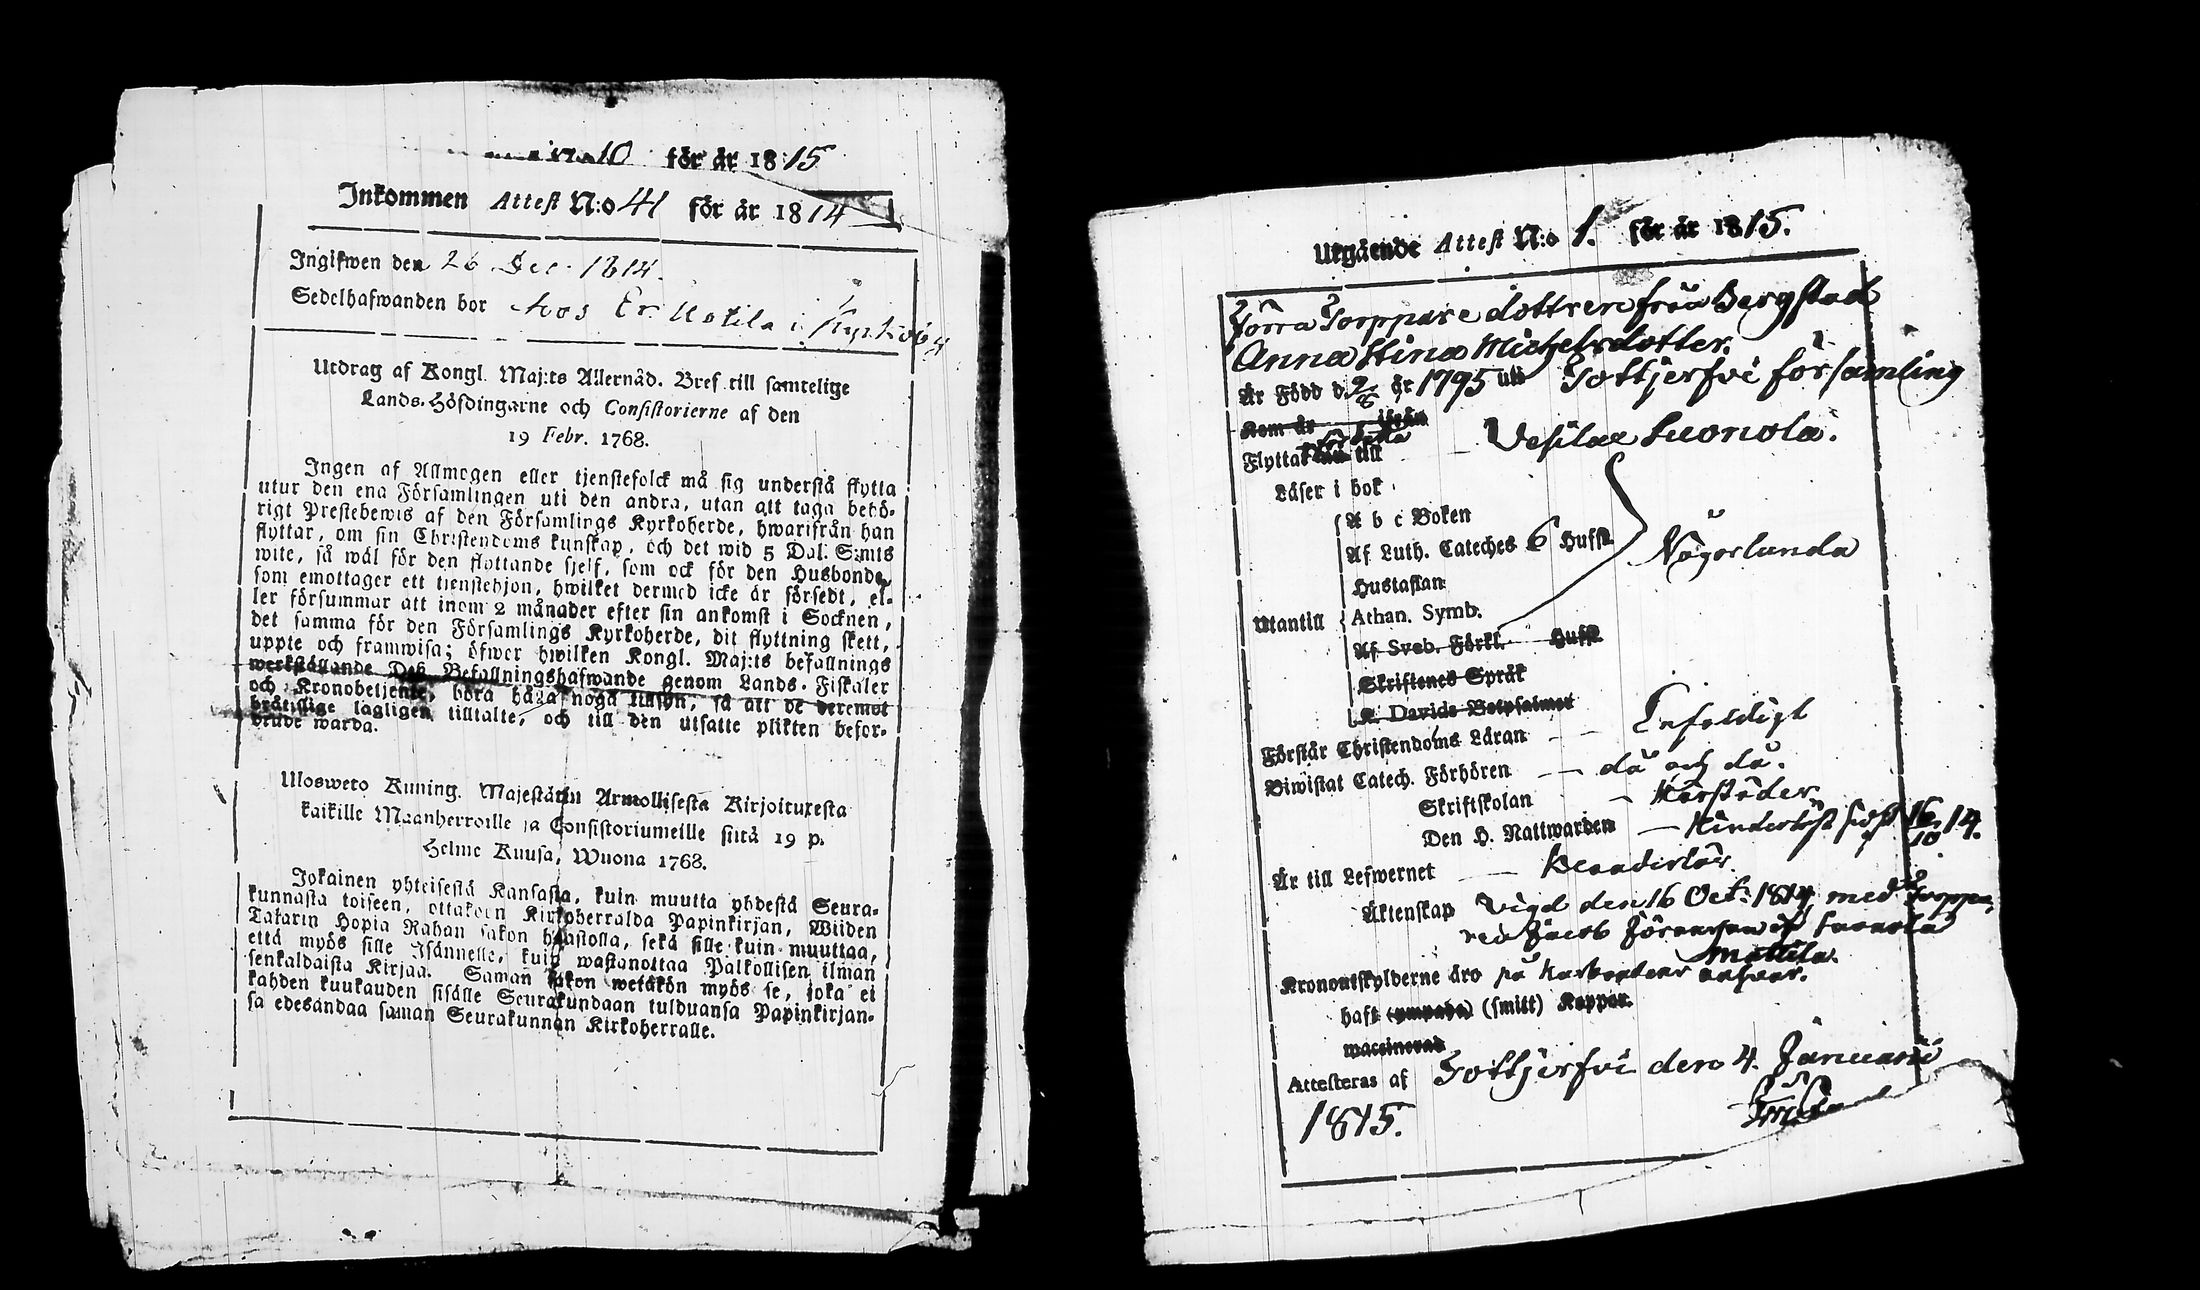 N:o 10 för år 1815
Inkommen Attest N:o 41 för år 1814
Ingifwen den 26 Dec. 1814.
Sedelhafwanden bor hos Er. Uotila i Kyrkoby
Utdrag af Kongl. Maj:ts Allernåd. Bref till samtelige
Lands-Höfdingarne och Consistorierne af den
19 Febr. 1768.
Ingen af Allmogen eller tjenstefolck må sig understå flytta
utur den ena Församlingen uti den andra, utan att taga behö-
rigt Prestebewis af den Församlings Kyrkoherde, hwarifrån han
flyttar, om sin Christendoms kunskap, och det wid 5 Dal. S:mts
wite, så wäl för den flyttande sjelf, som ock för den Husbonde,
som emottager ett tienstehjon, hwilket dermed icke är försedt, el-
ler försummar att inom 2 månader efter sin ankomst i Socknen,
det samma för den Församlings Kyrkoherde, dit flyttning skett,
uppte och framwisa; öfwer hwilken Kongl. Maj:ts befallnings
werkställande Dess Befallningshafwande genom Lands-Fiskaler
och Kronobetjente, böra hålla noga tillsyn, så att de deremot
brätslige lagligen tilltalte, och till den utsatte plikten befor-
drude warda.
Ulosweto Kuning. Majestätin Armollisesta Kirjoituxesta
kaikille Maanherroille ja Consistoriumeille siitä 19 p.
Helme Kuusa, Wuona 1768.
Jokainen yhteisestä Kansasta, kuin muutta yhdestä Seura-
kunnasta toiseen, ottakoon Kirkoherralda Papinkirjan, Wiiden
Talarin Hopia Rahan sakon haastolla, sekä sille kuin muuttaa,
että myös sille Isännelle, kuin wastanottaa Palkollisen ilman
senkaldaista Kirjaa. Saman sakon wetäkön myös se, joka ei
kahden kuukauden sisälle Seurakundaan tulduansa Papinkirjan-
sa edesandaa saman Seurakunnan Kirkoherralle.
Utgående Attest N:o 1. för år 1815.
Förra Torppare dottren från Bergstad
Anna Stina Michelsdotter.
Är Född d. 2/8 år 1795 uti Tottjerfvi församling
Kom år ifrån
Flyttar till Vesilax Suonola.
Läser i bok
A b c Boken
Af Luth. Cateches 6 Huffst. Någorlunda
Hustaflan
Utantill Athan. Symb.
Af Sveb. Förkl. Huffst.
Skriftenes Språk
K. Davids Botpsalmer
Förstår Christendoms Läran Enfaldigt
Biwistat Catech. Förhören då och då.
Skriftskolan
Den H. Nattwarden sist 16/10 14.
Är till Lefwernet
Äktenskap Vigd den 16 Oct. 1814 med Torppa-
ren Jacob Göransson af Suonola
Mattila.
Kronoutskylderne äro på Husbondens ansvar.
haft (ympade) (smitt) Koppor.
waccinerad
Attesteras af Tottjerfvi den 4. Januarii
1815.